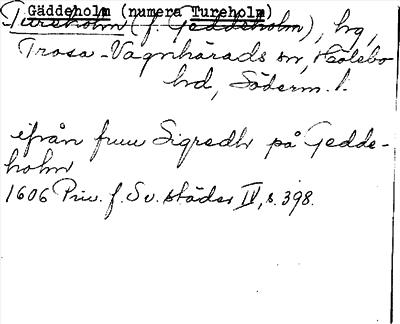 Gäddeholm (numera Tureholm)
Tureholm (f. Gäddeholm), hg,
Trosa-Vagnhärads sn, Hölebo
hd, Söderm. l.
ifrån fruu Sigredh på Gedde-
holm
1606 Priv. f. Sv. städer IV, s. 398.